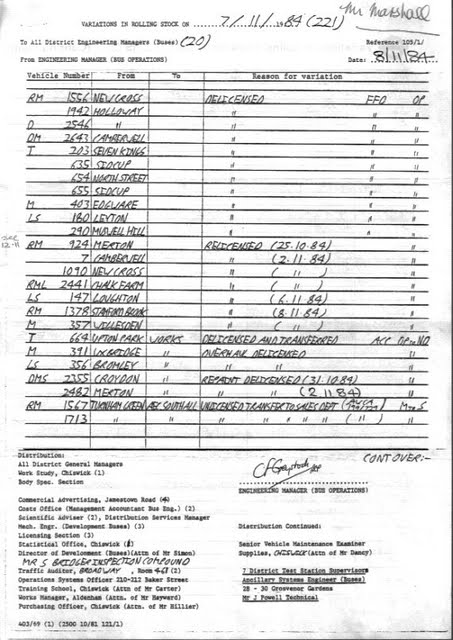 Mr Marshall
VARIATIONS IN ROLLING STOCK ON 7/11/1984 (221)
To All District Engineering Managers (Buses) (20) Reference 105/1/
From ENGINEERING MANAGER (BUS OPERATIONS) Date: 8/11/84
Vehicle Number From To Reason for variation
RM 1556 NEW CROSS DELICENSED FFO OP
1942 HOLLOWAY " " "
D 2546 " " " "
DM 2643 CAMBERWELL " " "
T 203 SEVEN KINGS " " "
635 SIDCUP " " "
654 NORTH STREET " " "
655 SIDCUP " " "
M 403 EDGWARE " " "
LS 180 LEYTON " " "
290 MUSWELL HILL " " "
12-11
RM 924 MERTON RELICENSED (25.10.84)
7 CAMBERWELL " (2.11.84)
1090 NEW CROSS " ( " )
RML 2441 CHALK FARM " ( " )
LS 147 LOUGHTON " (6.11.84)
RM 1378 STAMFORD BROOK " (8.11.84)
M 357 WILLESDEN " ( " )
T 664 UPTON PARK WORKS DELICENSED AND TRANSFERRED ACC
M 391 UXBRIDGE " OVERHAUL DELICENSED "
LS 356 BROMLEY " " " "
DMS 2355 CROYDON " REPAINT DELICENSED (31.10.84)
2482 MERTON " " " (2.11.84)
RM 1567 TURNHAM GREEN AEC SOUTHALL UNLICENSED TRANSFER TO SALES DEPT
1713 " " " " " " ( " ) "
CONT OVER:-
Distribution:
All District General Managers
Work Study, Chiswick (1)
Body Spec. Section
ENGINEERING MANAGER (BUS OPERATIONS)
Commercial Advertising, Jamestown Road
Costs Office (Management Accountant Bus Eng.) (2)
Scientific Adviser (2), Distribution Services Manager
Mech. Engr. (Development Buses) (3) Distribution Continued:
Licensing Section (3)
Statistical Office, Chiswick Senior Vehicle Maintenance Examiner
Director of Development (Buses)(Attn of Mr Simon) Supplies, CHISWICK (Attn of Mr Dancy)
MR S BRIDGER INSPECTION COMPOUND
Traffic Auditor, BROADWAY, Room 7 District Test Station Supervisors
Operations Systems Officer 210-212 Baker Street Ancillary Systems Engineer (Buses)
Training School, Chiswick (Attn of Mr Carter) 28 - 30 Grosvenor Gardens
Works Manager, Aldenham (Attn of Mr Hayward) Mr J Powell Technical
Purchasing Officer, Chiswick (Attn of Mr Hillier)
403/69 (1) (2500 10/81 121/1)